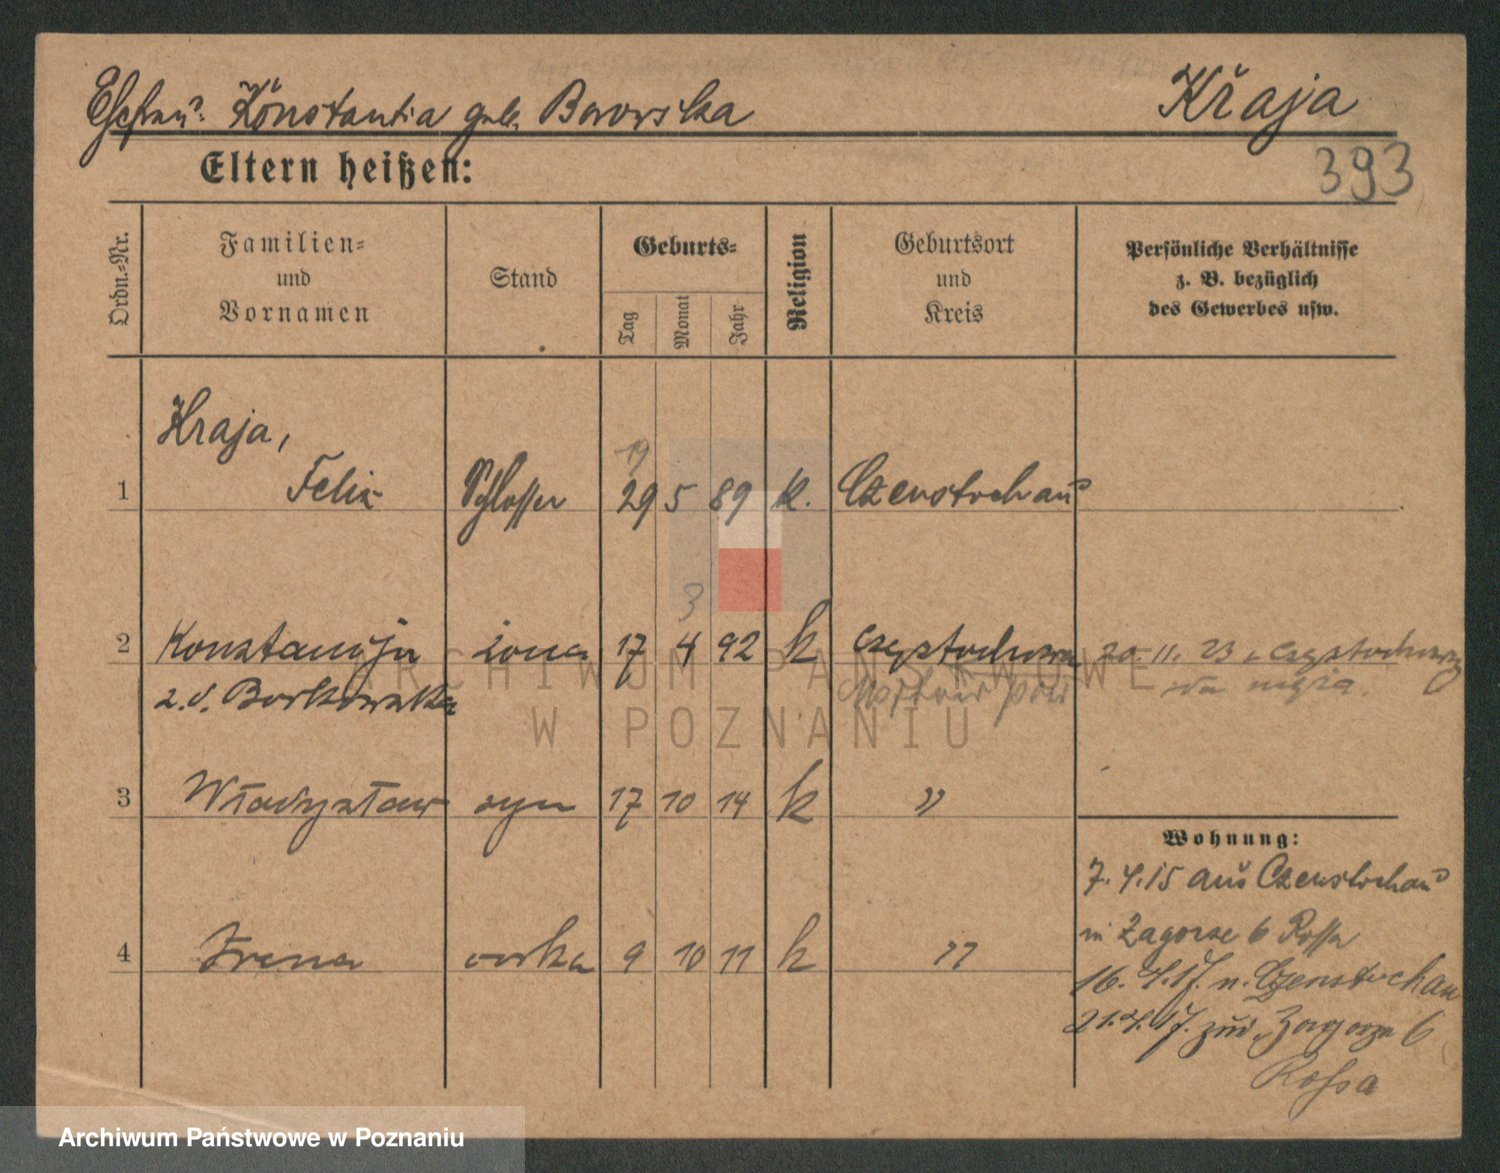 Ehefrau: Konstantia geb. Borowska
Kraja
Eltern heißen:
393
Ordn.-Nr.
Familien-
und
Vornamen
Stand
Geburts-
Tag
Monat
Jahr
Religion
Geburtsort
und
Kreis
Persönliche Verhältnisse
z. B. bezüglich
des Gewerbes usw.
Kraja,
19
1 Felix Schlosser 29 5 89 k. Czenstochau
3
2 Konstancja żona 17 4 92 k Częstochowa 20.11.23 z Częstochowy
z.d. Borkowska
ARCHIWUM PAŃSTWOWE
W POZNANIU
3 Władysław syn 17 10 14 k "
Wohnung:
7.4.15 aus Czenstochau
in Zagorze 6 Rossa
4 Irena córka 9 10 11 k "
16.4.17. n. Czenstochau
21.4.17. zur. Zagorze 6
Rossa
Archiwum Państwowe w Poznaniu